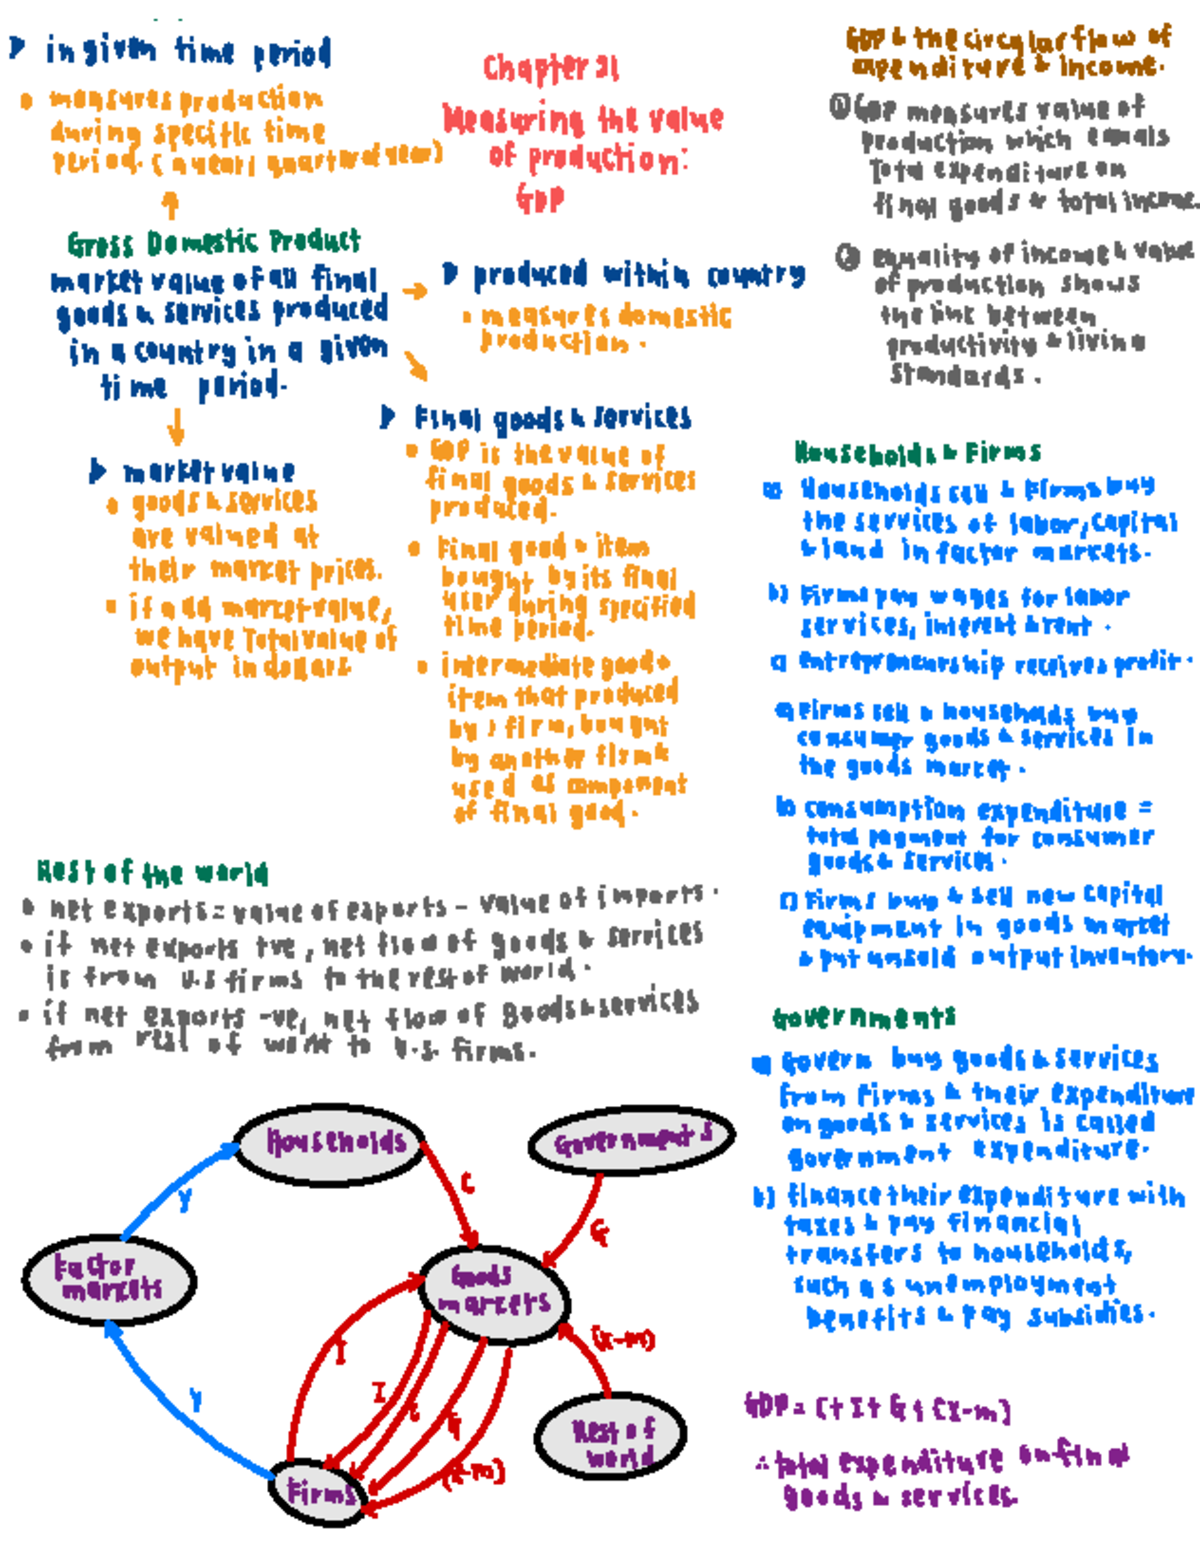 Chapter 21
Measuring the value
of production:
GDP
▶ in given time period
• measures production
during specific time
period. (a year/ quarter of year)
Gross Domestic Product
market value of all final
goods & services produced
in a country in a given
time period.
▶ market value
• goods & services
are valued at
their market prices.
• if add market value,
we have Total value of
output in dollars
▶ produced within country
• measures domestic
production.
▶ Final goods & services
• GDP is the value of
final goods & services
produced.
• Final good → item
bought by its final
user during specified
time period.
• intermediate good →
item that produced
by 1 firm, bought
by another firm &
used as component
of final good.
GDP & the circular flow of
expenditure & income.
① GDP measures value of
production which equals
Total expenditure on
final goods & total income.
② equality of income & value
of production shows
the link between
productivity & living
standards.
Households & Firms
a) Households sell & Firms buy
the services of labor, capital
& land in factor markets.
b) Firms pay wages for labor
services, interest & rent.
c) entrepreneurship receives profit.
a) Firms sell & households buy
consumer goods & services in
the goods market.
b) consumption expenditure =
total payment for consumer
goods & services.
c) Firms buy & sell new capital
equipment in goods market
& put unsold output inventory.
Governments
a) Govern buy goods & services
from Firms & their expenditure
on goods & services is called
government expenditure.
b) finance their expenditure with
taxes & pay financial
transfers to households,
such as unemployment
benefits & pay subsidies.
Rest of the world
• net exports = value of exports - value of imports.
• if net exports +ve, net flow of goods & services
is from U.S firms to the rest of world.
• if net exports -ve, net flow of goods & services
from rest of world to U.S. firms.
Households
Governments
Y
C
G
Factor
markets
Goods
markets
(x-m)
I
I
C
G
(x-m)
Y
Rest of
world
Firms
GDP = C + I + G + (X-m)
∴ total expenditure on final
goods & services.